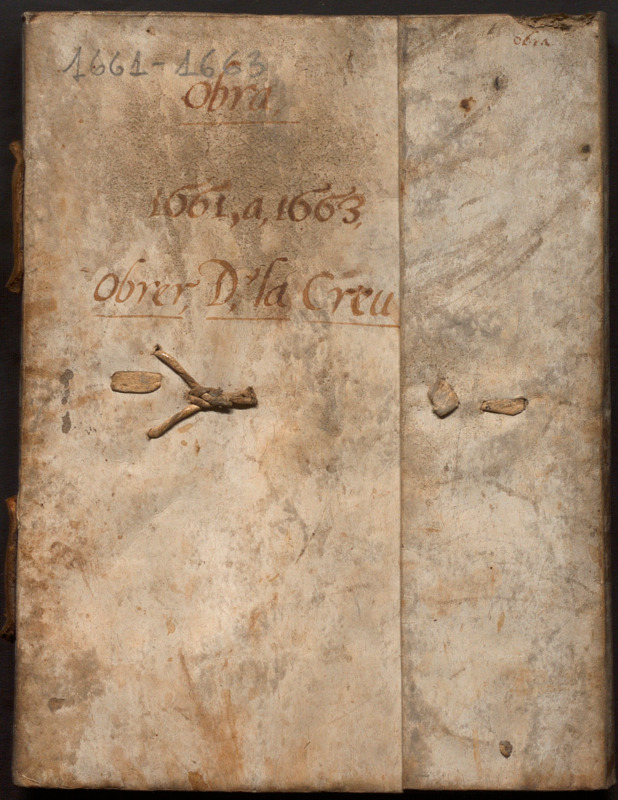 1661-1663
Obra
1661, a, 1663,
Obrer D. la Creu
obra